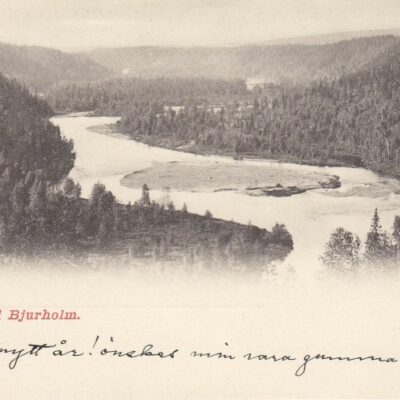 Bjurholm.
nytt år! önskas min vara gumma